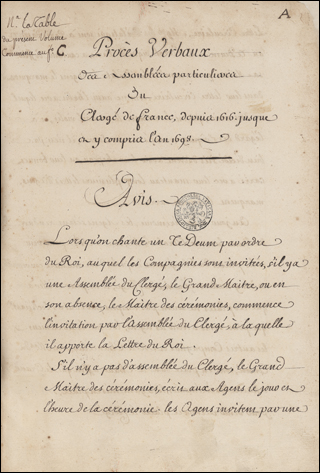 A
Nª la Table
du présent Volume
Commence au fº C
Procès Verbaux
des Assemblées particulieres
Du
Clergé de france, depuis 1616. jusque
et y compris l'an 1698.
Avis.
Lorsqu'on chante un Te Deum par ordre
du Roi, auquel les Compagnies sont invités, s'il y a
une Assemblée du Clergé, le Grand Maitre, ou en
son absence, le Maitre des cérémonies, commence
l'invitation par l'Assemblée du Clergé, à la quelle
il apporte la Lettre du Roi.
S'il n'y a pas d'assemblée du Clergé, le Grand
Maitre des cérémonies, écrit aux Agens le jour et
l'heure de la cérémonie. les Agens invitent par une